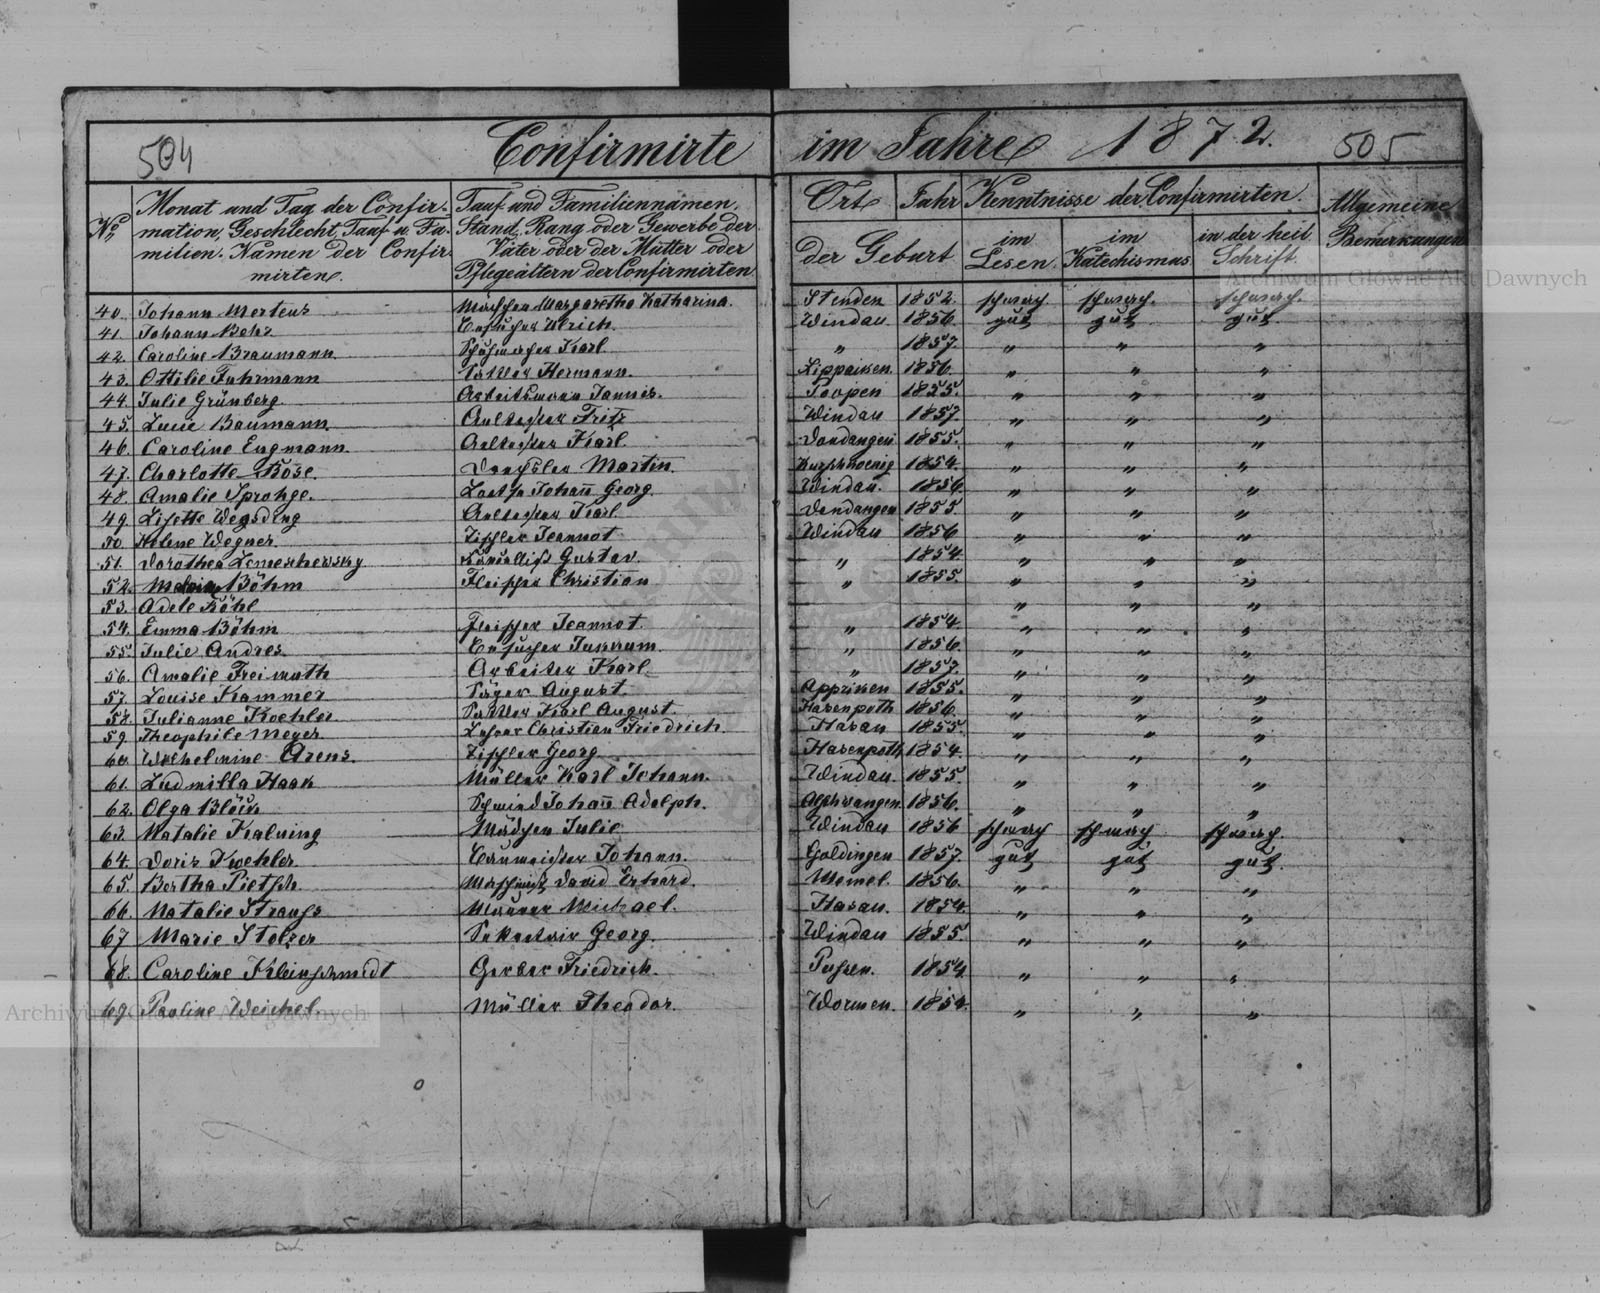 504
Confirmirte im Jahre 1872.
505
No
Monat und Tag der Confir-
mation, Geschlecht, Tauf u. Fa-
milien-Namen der Confir-
mirten.
Tauf und Familiennamen,
Stand, Rang oder Gewerbe der
Väter oder der Mütter oder
Pflegeältern der Confirmirten
Ort
Jahr
der Geburt
Kenntnisse der Confirmirten.
im
Lesen.
im
Katechismus
in der heil
Schrift.
Allgemeine
Bemerkungen
40. Johann Mertens Mädchen Margaretha Katharina. Stenden 1852. schwach schwach. schwach.
41. Johann Behr Ulrich. Windau 1856. gut gut gut
42. Caroline Braumann Schuhmacher Karl. „ 1857. „ „ „
43. Ottilie Fuhrmann Sattler Hermann. Lippaiken. 1856. „ „ „
44. Julie Grünberg Arbeitsmann Jannis. Poopen 1855. „ „ „
45. Lucie Baumann Aeltester Fritz Windau 1857 „ „ „
46. Caroline Engmann. Aeltester Karl Dondangen 1855. „ „ „
47. Charlotte Bose. Drechsler Martin. 1854. „ „ „
48. Amalie Sprohge. Lootse Johann Georg. Windau. 1856. „ „ „
49. Lisette Aeltester Karl Dondangen 1855. „ „ „
50. Helene Wegner. Tischler Jeannot Windau 1856 „ „ „
51. Dorothea Lemeschewsky Kanzellist Gustav. „ 1854. „ „ „
52. Böhm Fleischer Christian „ 1855. „ „ „
53. Adele Köhl „ „ „
54. Emma Böhm Fleischer Jeannot „ 1854. „ „ „
55. Julie Andres „ 1856. „ „ „
56. Amalie Freimuth Arbeiter Karl „ 1857. „ „ „
57. Louise Kammer Säger August. Appricken 1855. „ „ „
58. Julianne Koehler Sattler Karl August Hasenpoth 1856. „ „ „
59. Theophile Meyer Lehrer Christian Friedrich. Hasau 1855. „ „ „
60. Wilhelmine Arens. Tischler Georg Hasenpoth 1854. „ „ „
61. Ludmilla Haak Müller Karl Johann. Windau. 1855. „ „ „
62. Olga Schmied Johann Adolph. Alschwangen 1856. „ „ „
63. Natalie Kalning Mädchen Julie Windau 1856 schwach schwach schwach.
64. Doris Koehler. Baumeister Johann. Goldingen 1857. gut gut gut.
65. Bertha Pietsch. Maschinist David Erhard. Memel. 1856. „ „ „
66. Natalie Strauss Maurer Michael. Hasau. 1854. „ „ „
67. Marie Stolzer Sekretair Georg. Windau 1855. „ „ „
68. Caroline Kleinschmidt Gerber Friedrich. Puhsen. 1854. „ „ „
69. Pauline Weichel. Müller Theodor. Wormen. 1854. „ „ „
Archiwum Główne Akt Dawnych
Archiwum Główne Akt Dawnych